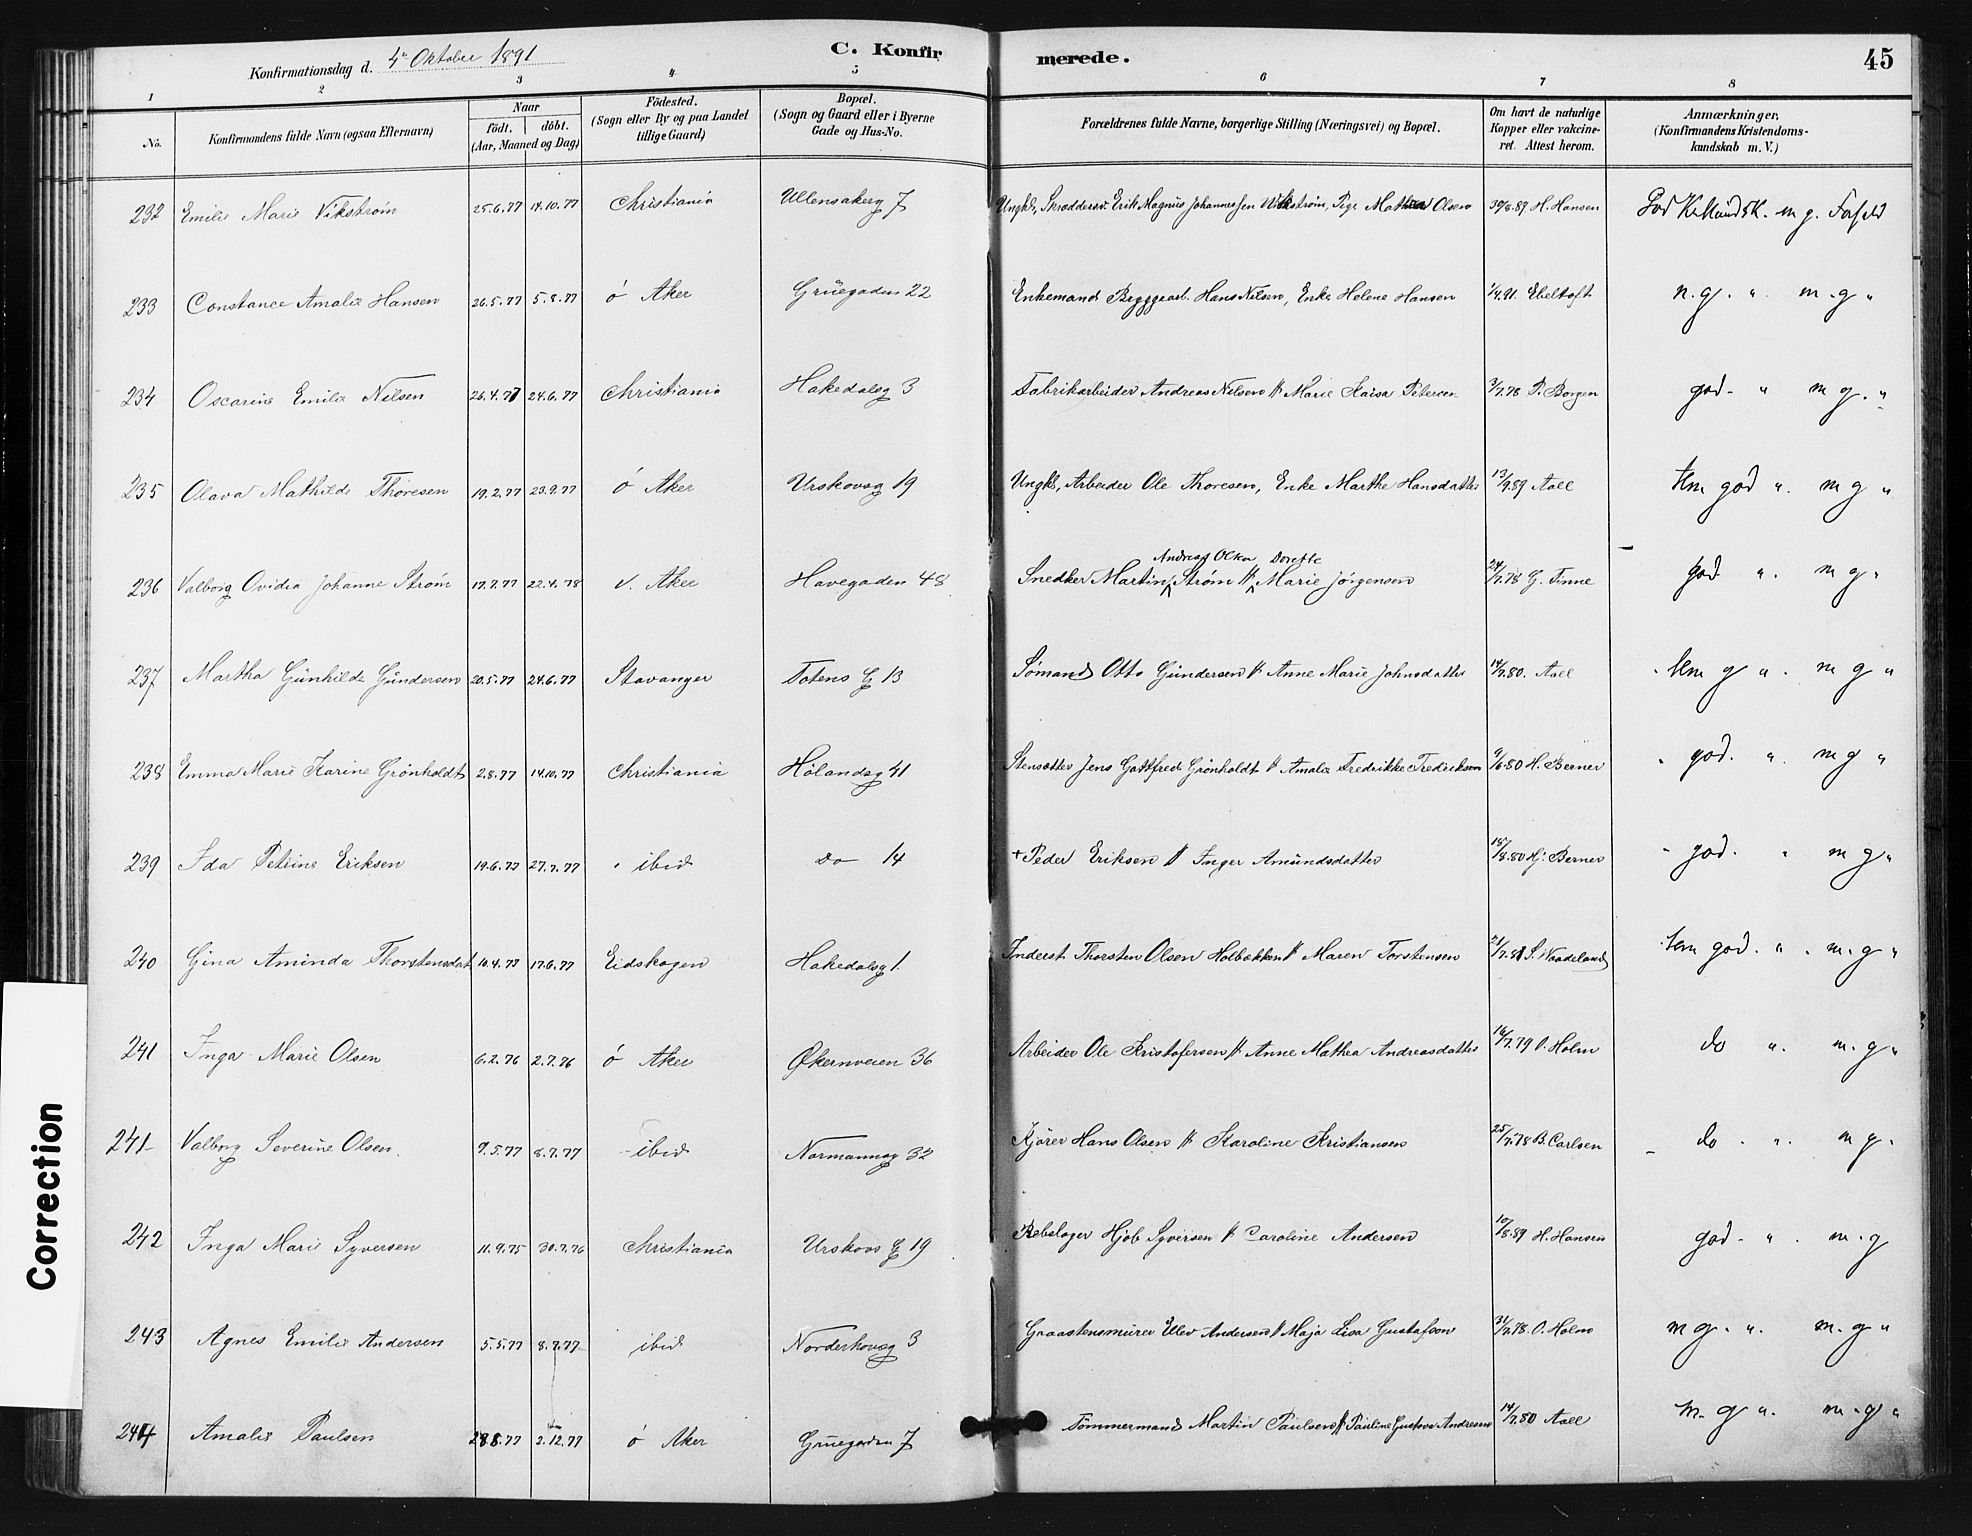 Konfirmationsdag d. 4de Oktober 1891 C. Konfirmerede. 45
1 2 3 4 5 6 7 8
No. Konfirmandens fulde Navn (ogsaa Efternavn) Naar födt. döbt. (Aar, Maaned og Dag) Födested. (Sogn eller By og paa Landet tillige Gaard) Bopæl. (Sogn og Gaard eller i Byerne Gade og Hus-No. Forældrenes fulde Navne, borgerlige Stilling (Næringsvei) og Bopæl. Om havt de naturlige Kopper eller vakcineret. Attest herom. Anmærkninger, (Konfirmandens Kristendomskundskab m. V.)
232 Emilie Marie Vikstrøm 25.6.77 14.10.77 Christiania Ullensakerg 7 Ungk, Skræddersv. Erik Magnus Johannessen Wikstrøm, Pige Mathea Olsen 30/8.89 H. Hansen God Kr.Kundsk. m g. Forhold
233 Constance Amalie Hansen 26.5.77 5.8.77 ö Aker Grüegaden 22 Enkemand Bryggearb. Hans Nilsen, Enke Helene Hansen 1/4.91 Ebeltoft n.g. " m.g "
234 Oscarine Emilie Nilsen 26.4.77 24.6.77 Christiania Hakedalsg 3 Fabrikarbeider Andreas Nilsen & Marie Kaisa Petersen 3/7.78 P. Borgen god - " m g. "
235 Olava Mathilde Thoresen 19.2.77 23.9.77 ö Aker Urskovsg 19 Ungk, Arbeider Ole Thoresen, Enke Marthe Hansdatter 13/9.89 Aall tem god " m g "
236 Valborg Ovidia Johanne Strøm 17.7.77 22.4.78 v. Aker Havegaden 48 Snedker Martin Andreas Olsen Strøm & Dorette Marie Jörgensen 24/7.78 G. Finne god " m g "
237 Martha Günhilde Gündersen 20.5.77 24.6.77 Stavanger Totens G 13 Sømand Otto Gündersen & Anne Marie Johnsdatter 14/7.80. Aall tem g " m g "
238 Emma Marie Karine Grönholdt 2.8.77 14.10.77 Christiania Hölandsg 41 Stensætter Jens Gottfred Grönholdt & Amalie Fredrikke Fredriksen 9/6.80 H. Berner god. " m g "
239 Ida Petrine Eriksen 19.6.77 27.7.77 ibid do 14 + Peder Eriksen & Inger Amündsdatter 18/8.80 Hj. Berner god. " m g "
240 Gina Aminda Thorstensdat 10.4.77 17.6.77 Eidskogen Hakedalsg 1. Inderst Thorsten Olsen Holbækken & Maren Torstensen 21/7.81 S. Waadeland tem god. " m.g "
241 Inga Marie Olsen 6.2.76 2.7.76 ö Aker Økernveien 36 Arbeider Ole Kristofersen & Anne Mathea Andreasdatter 16/7.79 O. Holm do " m.g "
241 Valborg Severine Olsen. 9.5.77 8.7.77 ibid Normannsg 32 Kjörer Hans Olsen & Karoline Kristiansen 25/7.78 B. Carlsen do " m g.
242 Inga Marie Syversen 11.9.75 30.7.76 Christiania Urskovs G 19 Rebslager Hjöb Syversen & Caroline Andersen 10/8.89 H. Hansen god - " m.g
243 Agnes Emilie Andersen 5.5.77 8.7.77 ibid Norderhovsg 3 Graastensmurer Ellev Andersen & Maja Lisa Gustafson 31/7.78. O. Holm m g. " m.g "
244 Amalie Paulsen 28 8.77 2.12.77 ö Aker Grüegaden 7 Tömmermand Martin Paulsen & Pauline Gustava Andresen 14/7.80 Aall m. g " m.g "
Correction